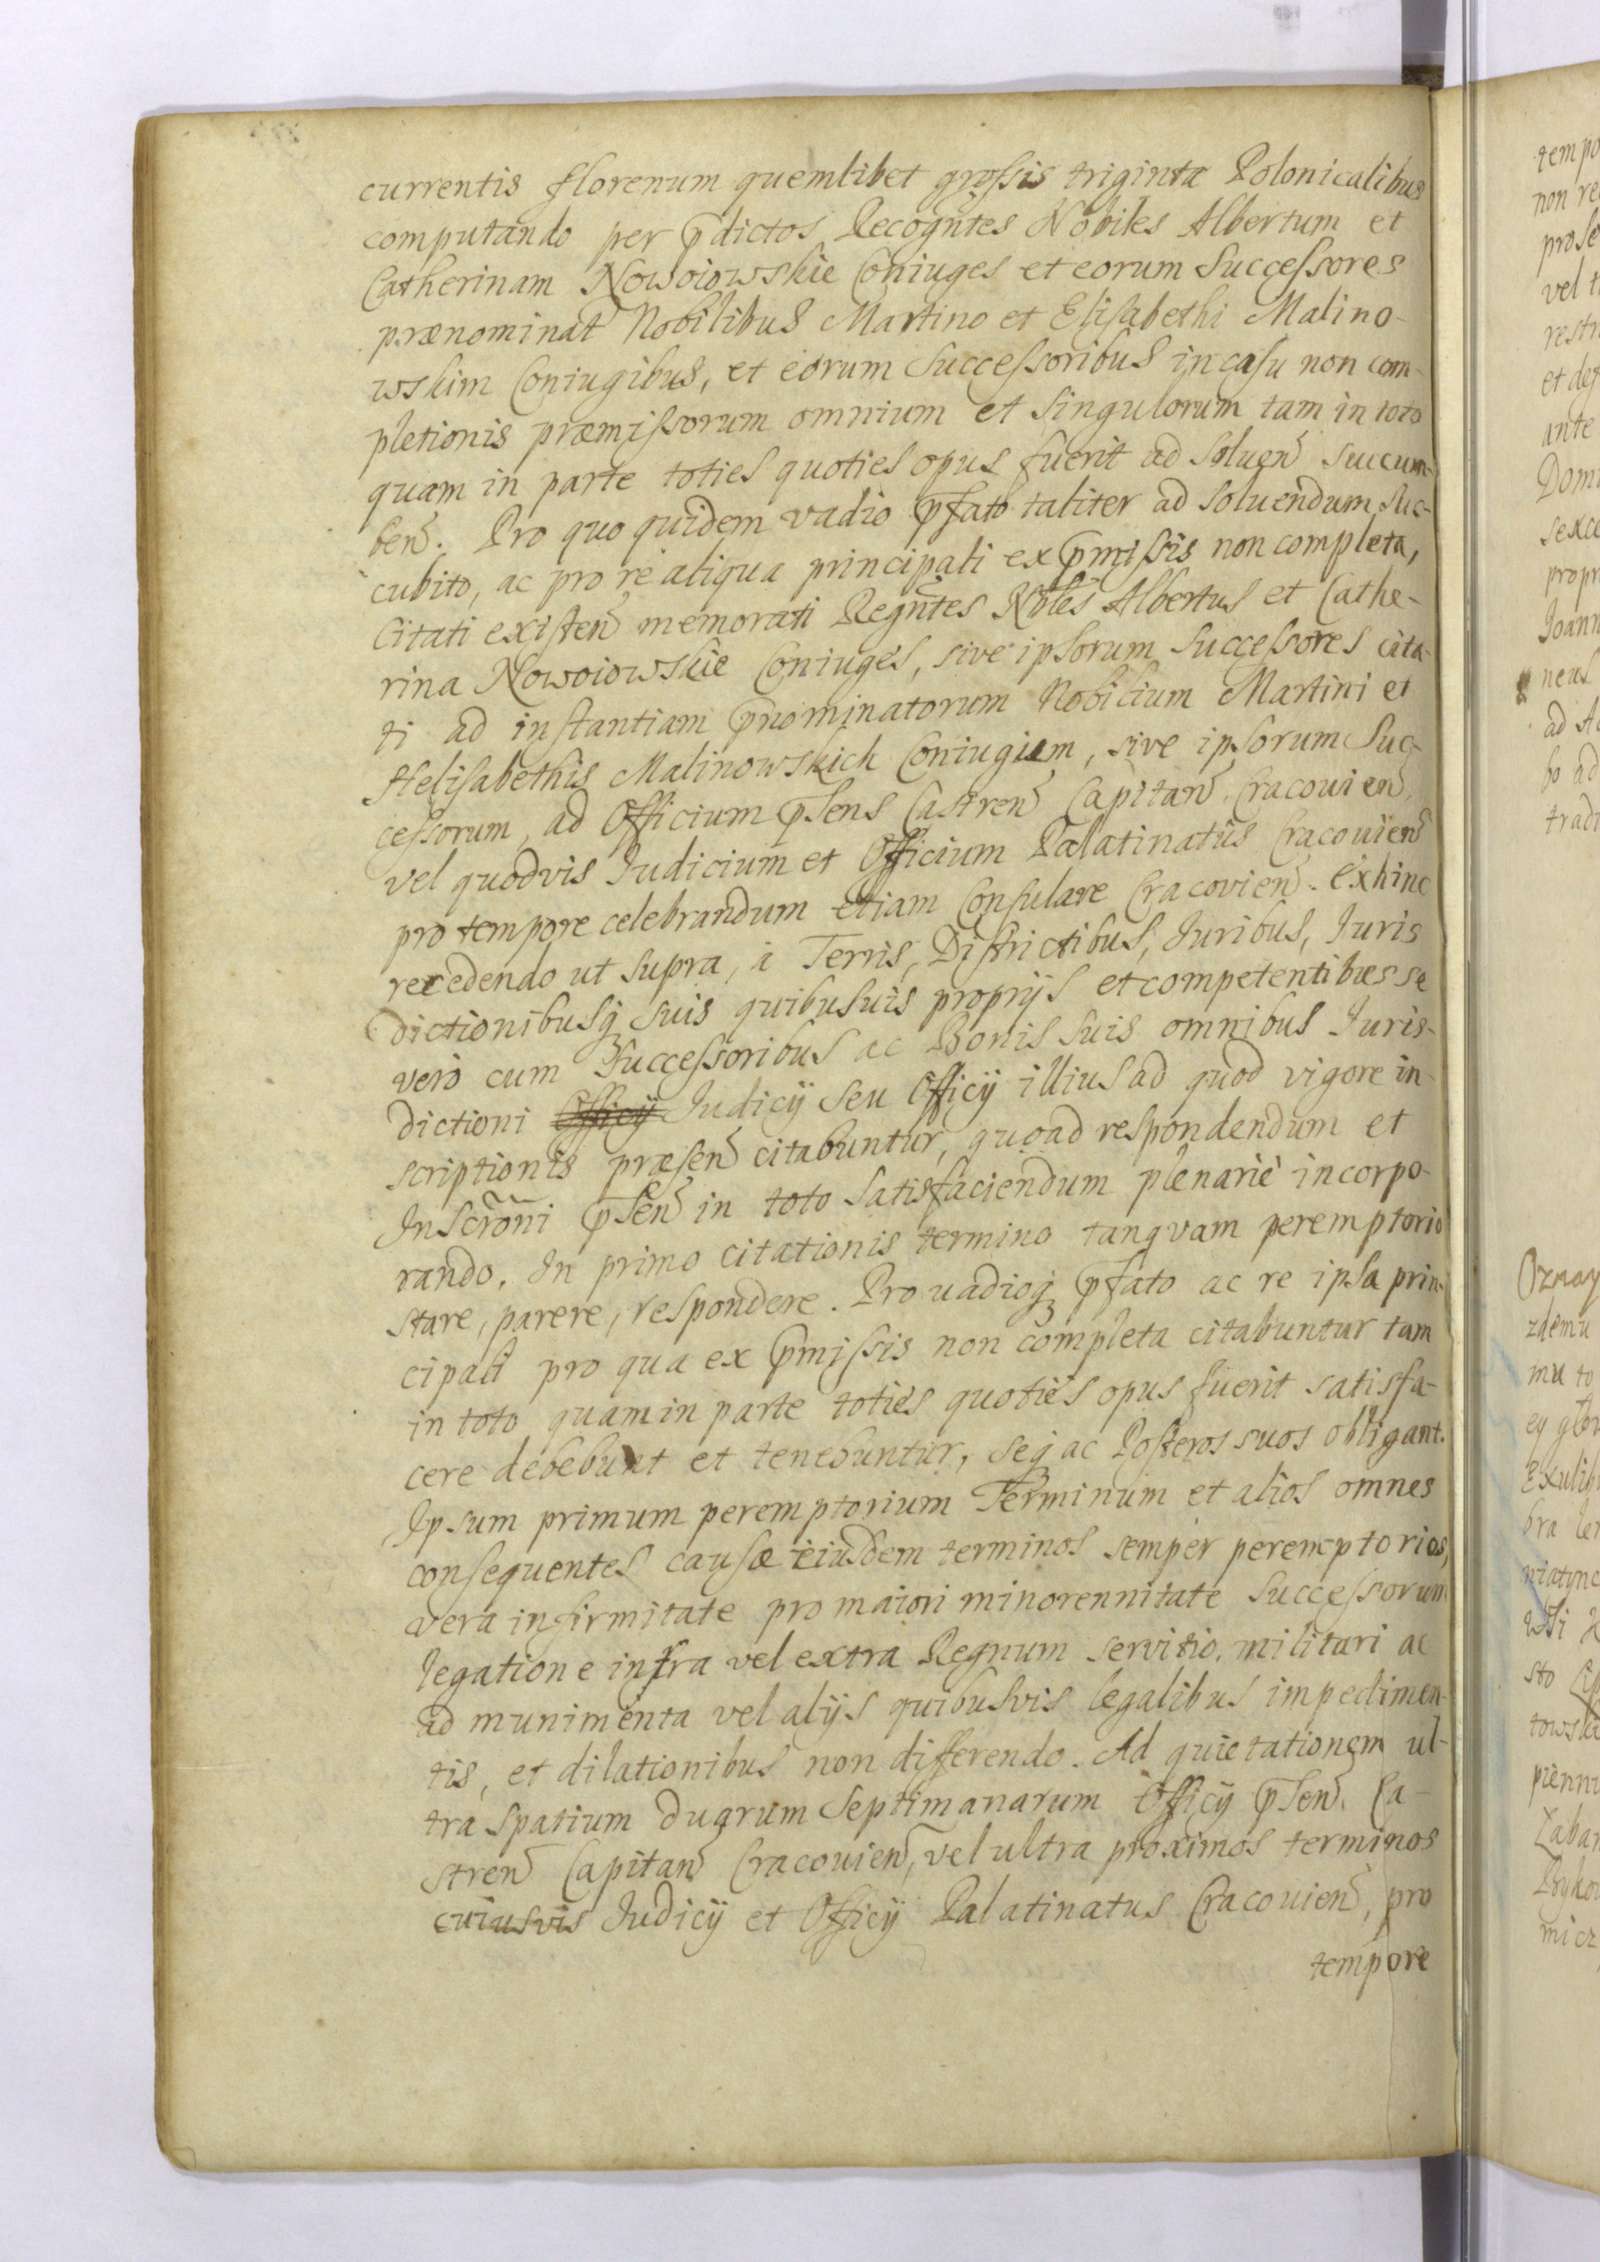 currentis florenum quemlibet grossis triginta Polonicalibus
computando per p̄dictos Recogn̄tes Nobiles Albertum et
Catherinam Nowoiowskie Coniuges et eorum Successores
prænominat̄ Nobilibus Martino et Elisabethi Malino-
wskim Coniugibus, et eorum Successoribus in casu non com-
pletionis præmissorum omnium et singulorum tam in toto
quam in parte toties quoties opus fuerit ad soluen̄ succum-
ben̄. Pro quo quidem vadio p̄fato taliter ad soluendum suc-
cubito, ac pro re aliqua principali ex p̄missis non completa,
Citati existen̄ memorati Regn̄tes Nbles Albertus et Cathe-
rina Nowoiowskie Coniuges, sive ipsorum Successores cita-
ti ad instantiam p̄nominatorum Nobilium Martini et
Helisabethis Malinowskich Coniugum, sive ipsorum Suc-
cessorum, ad Officium p̄sens Castren̄ Capitan̄. Cracouien̄.
vel quodvis Judicium et Officium Palatinatus Cracouien̄
pro tempore celebrandum etiam Consulare Cracovien̄. Exhinc
recedendo ut supra, a Terris, Districtibus, Iuribus, Iuris
dictionibusq́ suis quibusuis proprijs et competentibus se
vero cum Successoribus ac Bonis suis omnibus Juris-
dictioni Officij Judicij seu Officij illius ad quod vigore in-
scriptionis præsen̄ citabuntur, quoad respondendum et
Inscr̄oni p̄sen̄ in toto satisfaciendum plenariè incorpo-
rando. In primo citationis termino tanqvam peremptorio
stare, parere, respondere. Pro vadioq́ p̄fato ac re ipsa prin-
cipali pro qua ex p̄missis non completa citabuntur tam
in toto quam in parte toties quoties opus fuerit satisfa-
cere debebunt et tenebuntur, seq́ ac Posteros suos obligant.
Ipsum primum peremptorium Terminum et alios omnes
consequentes causæ eiusdem terminos semper peremptorios,
vera infirmitate pro maiori minorennitate Successorum
legatione infra vel extra Regnum servitio militari ac
ad munimenta vel alijs quibusvis legalibus impedimen-
tis, et dilationibus non differendo. Ad quietationem ul-
tra spatium duarum Septimanarum Officij p̄sen̄. Ca-
stren̄ Capitan̄ Cracouien̄, vel ultra proximos terminos
cuiusvis Judicij et Officij Palatinatus Cracouien̄, pro
tempore
tempo
non re
vel t
et deg
ante
Domi
propr
Joann
neus
ad A
ho ad
tradi
Oznay
zdemu
mu to
bra
sto
micz